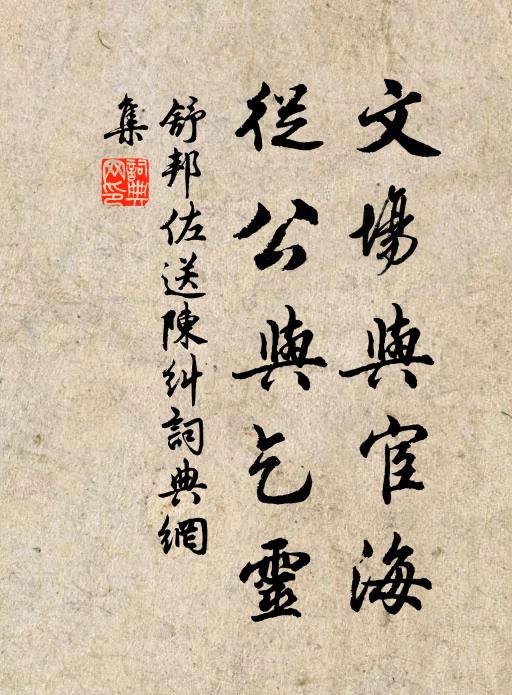 文場與宦海
從公與乞靈
舒邦佐送陳糾詞典網
集
詞典網印